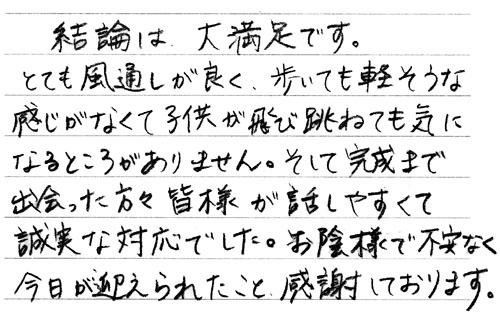 結論は、大満足です。
とても風通しが良く、歩いても軽そうな
感じがなくて子供が飛び跳ねても気に
なるところがありません。そして完成まで
出会った方々皆様が話しやすくて
誠実な対応でした。お陰様で不安なく
今日が迎えられたこと、感謝しております。